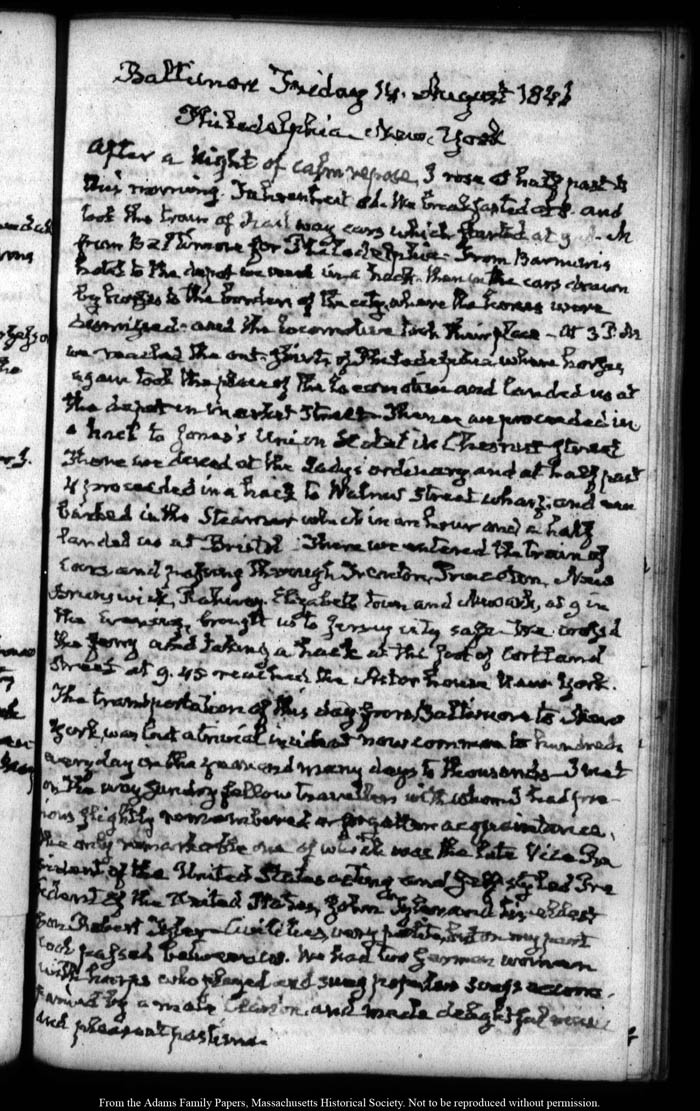 Baltimore Friday 14. August 1846
Philadelphia. New-York
After a Night of calm repose, I rose at half past
this morning. Fahrenheit 80. We breakfasted at 8. and
took the train of Rail way cars which started at 9
from Baltimore for Philadelphia. From Barnum's
hotel to the depot we went in a hack. then in the cars drawn
by horses to the borders of the city, where the horses were
dismissed. and the locomotive took their place – At 3 P.M
we reached the out-skirts of Philadelphia where horses
again took the place of the locomotive and landed us at
the depot in Market Street. Thence we proceeded in
a hack to Jones's Union Hotel in Chesnut Street
There we dined at the Lady's ordinary, and at half past
4 proceeded in a hack to Walnut Street wharf, and em
barked in the Steamer which in an hour and a half
landed us at Bristol – There we entered the train of
Cars and passing through Trenton, Princeton, New
Brunswick, Rahway. Elizabeth town and Newark, at 9 in
the Evening, brought us to Jersey city safe. We crossed
the ferry and taking a hack at the foot of Cortland
Street at 9.45 reached the Astor house New-York.
The transportation of this day from Baltimore to New
York was but a trivial incident now common to hundreds
every day in the year and many days to thousands – I met
on the way sundry fellow travellers with whom I had pre-
ious slightly remembered or forgotten acquaintance,
the only remarkable one of which was the late Vice Pre
sident of the United States acting and self styled Pre
sident of the United States, John Tyler and his eldest
son Robert Tyler – Civilities, very polite, but on my part
cool passed between us. We had two German women
with harps who played and sung popular songs accom-
panied by a male Clarion. and made delightful music
and pleasant pastime.
From the Adams Family Papers, Massachusetts Historical Society. Not to be reproduced without permission.